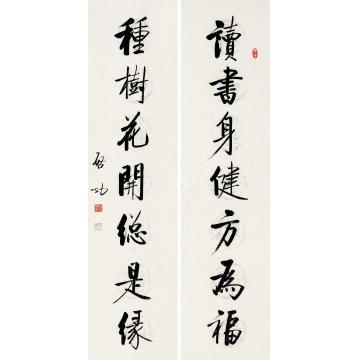 讀書身健方為福
種樹花開總是緣
啟功